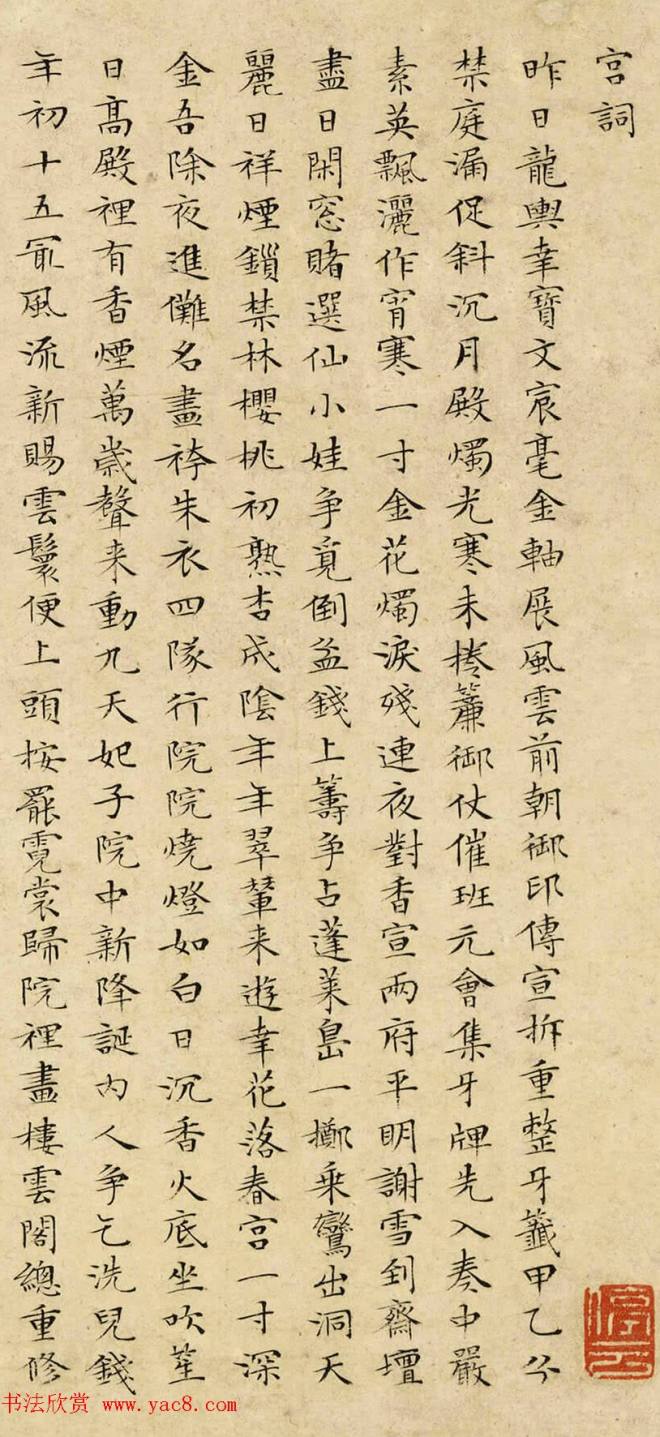 宮詞
昨日龍輿幸寶文宸毫金軸展風雲前朝御印傳宣拆重整牙籤甲乙分
禁庭漏促斜沉月殿燭光寒未捲簾御仗催班元會集牙牌先入奏中嚴
素英飄灑作宵寒一寸金花燭淚殘連夜對香宣兩府平明謝雪到齋壇
盡日閑窓賭選仙小娃争覓倒盆錢上籌争占蓬萊島一擲乘鸞出洞天
麗日祥煙鎖禁林櫻桃初熟杏成陰年年翠輦来遊幸花落春宫一寸深
金吾除夜進儺名畫袴朱衣四隊行院院燒燈如白日沉香火底坐吹笙
日髙殿裡有香煙萬歲聲来動九天妃子院中新降誕內人争乞洗兒錢
年初十五冣風流新賜雲鬟便上頭按罷霓裳歸院裡畫樓雲閣總重修
书法欣赏 www.yac8.com